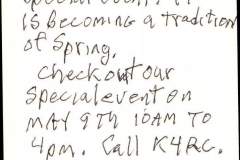 is becoming a tradition
of Spring.
Check out our
special event on
MAY 9TH 10AM TO
4pm. Call K4RC.